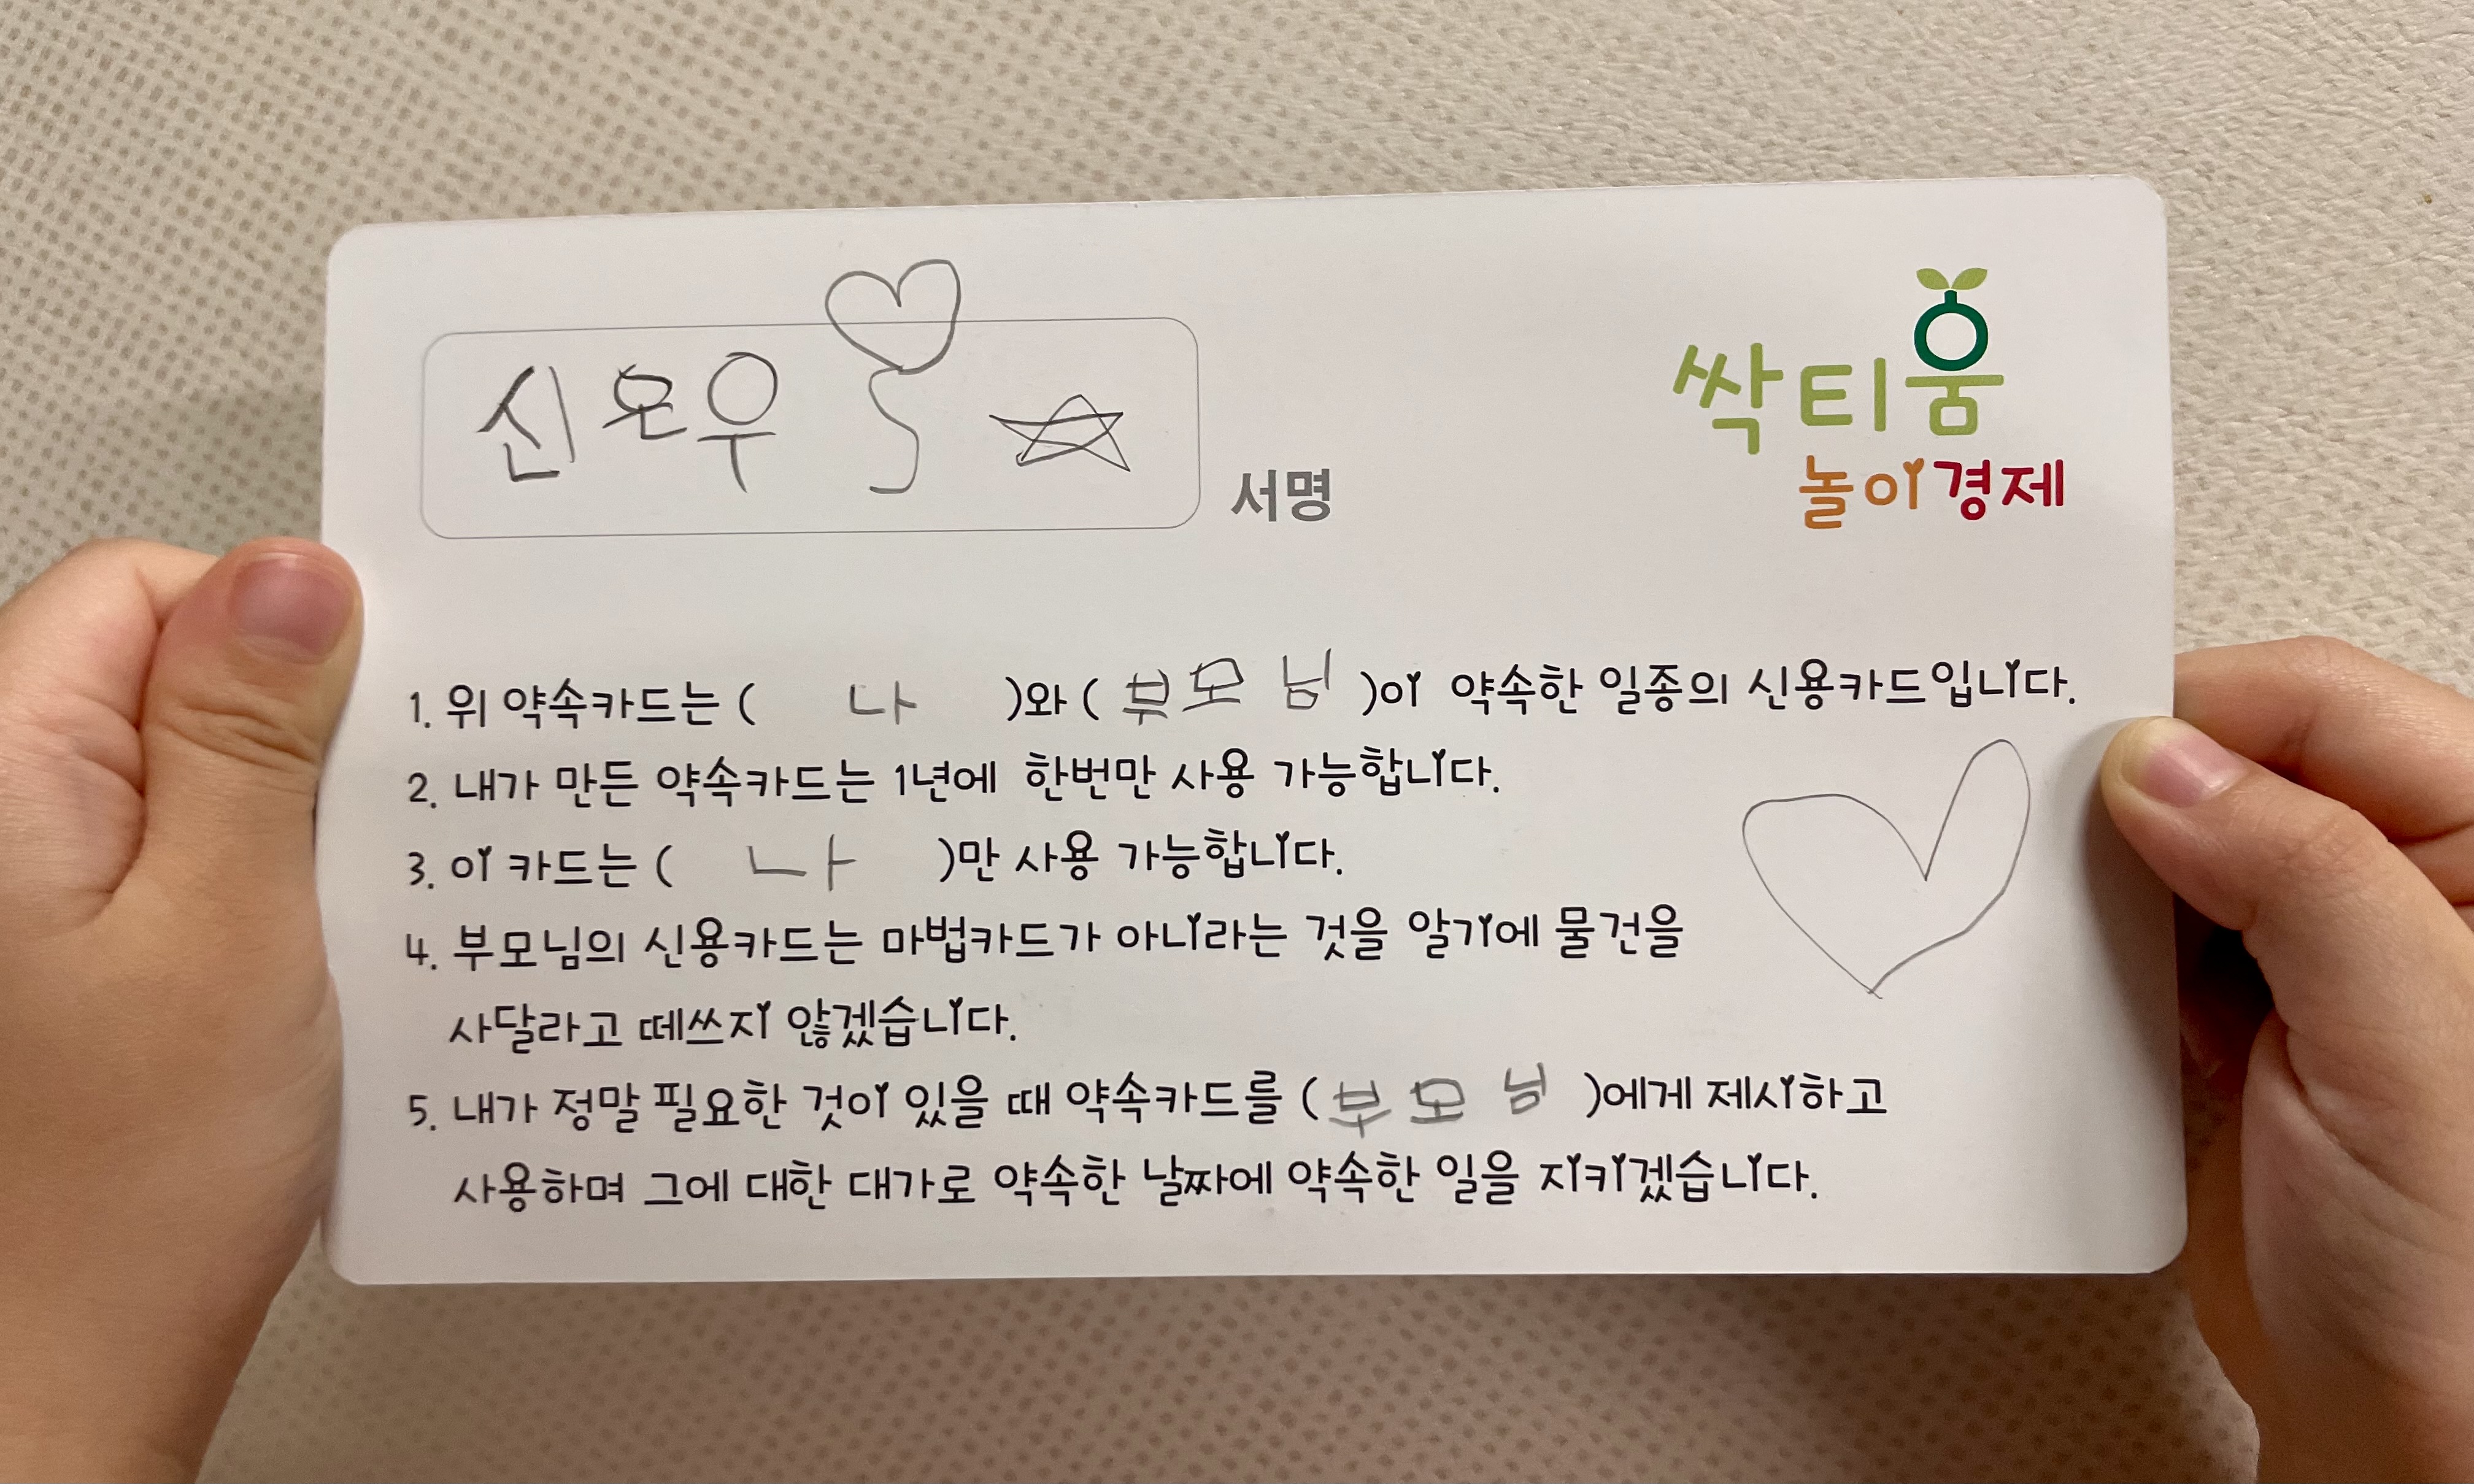 신온우
서명
싹티움
놀이경제
1. 위 약속카드는 ( 나 )와 ( 부모님 )이 약속한 일종의 신용카드입니다.
2. 내가 만든 약속카드는 1년에 한번만 사용 가능합니다.
3. 이 카드는 ( 나 )만 사용 가능합니다.
4. 부모님의 신용카드는 마법카드가 아니라는 것을 알기에 물건을
사달라고 떼쓰지 않겠습니다.
5. 내가 정말 필요한 것이 있을 때 약속카드를 ( 부모님 )에게 제시하고
사용하며 그에 대한 대가로 약속한 날짜에 약속한 일을 지키겠습니다.